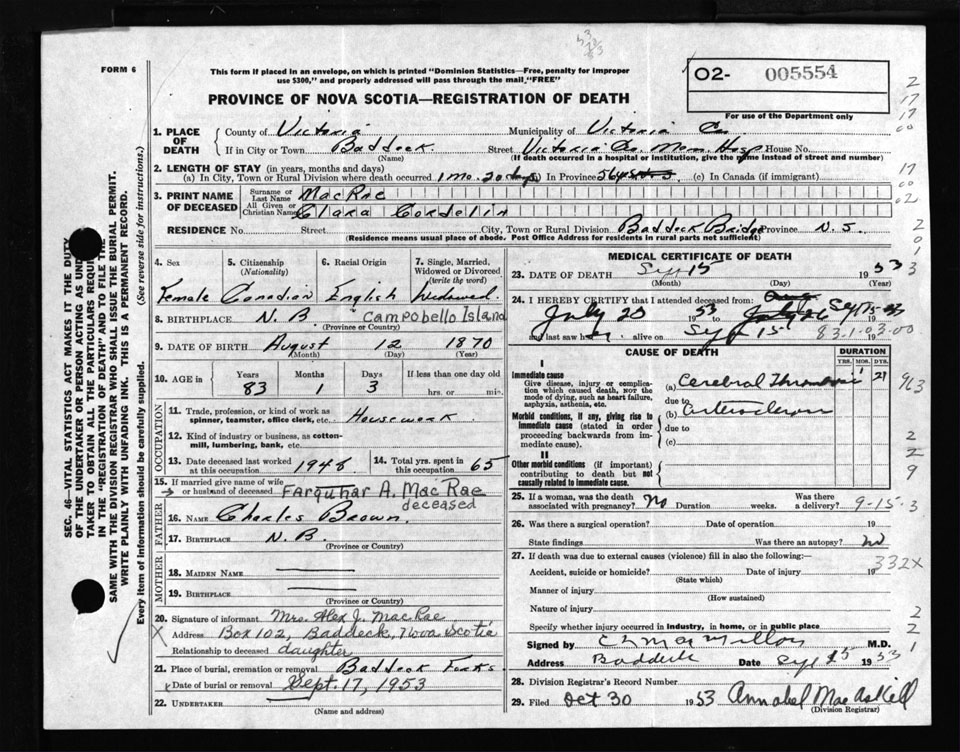 FORM 6
This form if placed in an envelope, on which is printed "Dominion Statistics—Free, penalty for improper
use $300," and properly addressed will pass through the mail "FREE"
O2- 005554
For use of the Department only
PROVINCE OF NOVA SCOTIA—REGISTRATION OF DEATH
1. PLACE OF DEATH
County of Victoria Municipality of Victoria Co
If in City or Town Baddeck Street Victoria Co Mem. Hosp House No.
(Name) (If death occurred in a hospital or institution, give the name instead of street and number)
2. LENGTH OF STAY (in years, months and days)
(a) In City, Town or Rural Division where death occurred 1 mo. 20 days (b) In Province (c) In Canada (if immigrant)
3. PRINT NAME OF DECEASED
Surname or Last Name MacRae
All Given or Christian Names Clara Cordelia
RESIDENCE No. Street City, Town or Rural Division Baddeck Bridge Province N. S.
(Residence means usual place of abode. Post Office Address for residents in rural parts not sufficient)
4. Sex 5. Citizenship (Nationality) 6. Racial Origin 7. Single, Married, Widowed or Divorced (write the word)
Female Canadian English Widowed
8. BIRTHPLACE N. B Campobello Island
(Province or Country)
9. DATE OF BIRTH August 12 1870
(Month) (Day) (Year)
10. AGE in Years Months Days If less than one day old
83 1 3 hrs. or min.
OCCUPATION
11. Trade, profession, or kind of work as
spinner, teamster, office clerk, etc. Housework
12. Kind of industry or business, as cotton-
mill, lumbering, bank, etc.
13. Date deceased last worked at this occupation 1948 14. Total yrs. spent in this occupation 65
15. If married give name of wife
or husband of deceased Farquhar A. MacRae
deceased
FATHER
16. NAME Charles Brown
17. BIRTHPLACE N. B.
(Province or Country)
MOTHER
18. MAIDEN NAME
19. BIRTHPLACE
(Province or Country)
20. Signature of informant Mrs. Alex J. MacRae
Address Box 102, Baddeck, Nova Scotia
Relationship to deceased daughter
21. Place of burial, cremation or removal Baddeck Forks
Date of burial or removal Sept. 17, 1953
22. UNDERTAKER
(Name and address)
MEDICAL CERTIFICATE OF DEATH
23. DATE OF DEATH Sept 15 1953
(Month) (Day) (Year)
24. I HEREBY CERTIFY that I attended deceased from:
July 20 1953 to Sept 15 53
and last saw her alive on Sept 15
83-1-03-00
CAUSE OF DEATH DURATION
YRS. MOS. DYS.
I
Immediate cause
Give disease, injury or complication which caused death, NOT the mode of dying, such as heart failure, asphyxia, asthenia, etc.
(a) Cerebral Thrombosis 1 21
due to
Morbid conditions, if any, giving rise to immediate cause (stated in order proceeding backwards from immediate cause).
(b)
due to
(c)
II
Other morbid conditions (if important) contributing to death but not causally related to immediate cause.
25. If a woman, was the death associated with pregnancy? No Duration weeks. Was there a delivery?
9-15-3
26. Was there a surgical operation? Date of operation 19
State findings Was there an autopsy? No
27. If death was due to external causes (violence) fill in also the following:—
332X
Accident, suicide or homicide? Date of injury 19
(State which)
Manner of injury
(How sustained)
Nature of injury
Specify whether injury occurred in industry, in home, or in public place
Signed by C L MacMillan M.D.
Address Baddeck Date Sept 15 1953
28. Division Registrar's Record Number
29. Filed Oct 30 1953 Annabel MacAskill
(Division Registrar)
SEC. 46—VITAL STATISTICS ACT MAKES IT THE DUTY
OF THE UNDERTAKER OR PERSON ACTING AS UNDER-
TAKER TO OBTAIN ALL THE PARTICULARS REQUIRED
IN THE "REGISTRATION OF DEATH" AND TO FILE THE
SAME WITH THE DIVISION REGISTRAR WHO SHALL ISSUE THE BURIAL PERMIT.
WRITE PLAINLY WITH UNFADING INK. THIS IS A PERMANENT RECORD.
Every item of information should be carefully supplied. (See reverse side for instructions.)